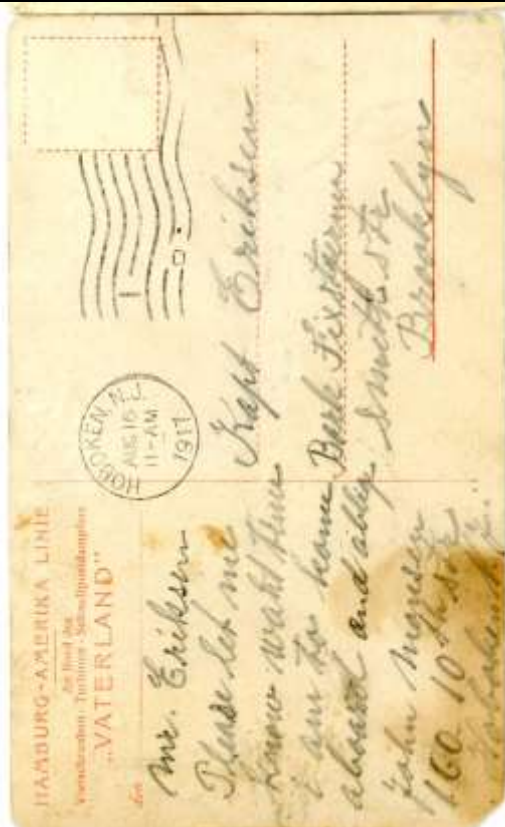 HAMBURG-AMERIKA LINIE
An Bord des
Vierschrauben-Turbinen-Schnellpostdampfers
„VATERLAND"
den
HOBOKEN, N.J.
AUG 16
11-AM
1917
Mr. Eriksen
Please let me
know waht time
I am to kome
aboard and ablig
John Monsen
160 10th str
Hoboken N.J.
Kapt Eriksen
Bark
Smith str
Brooklyn